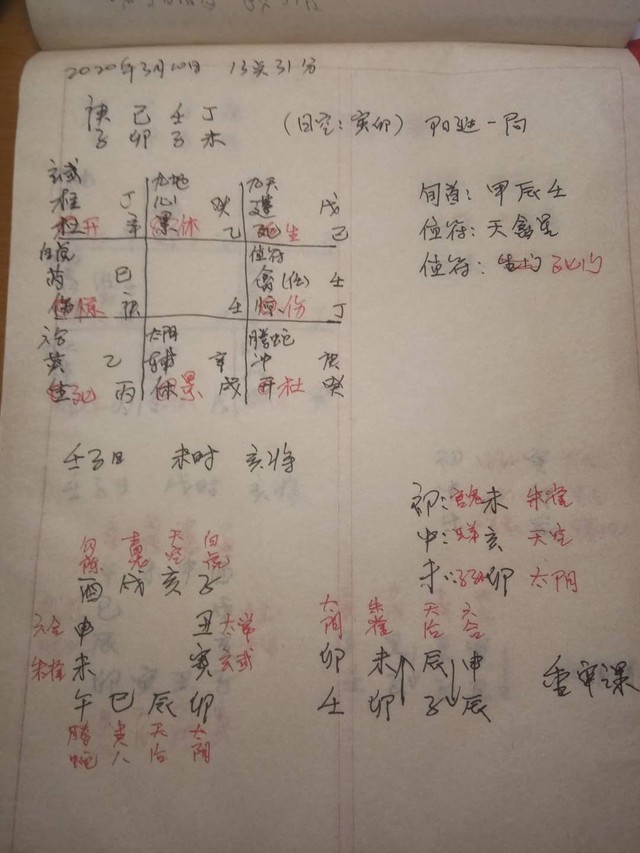 2020年3月10日 13点31分
庚 己 壬 丁
子 卯 子 未
(日空:寅卯) 阳遁一局
旬首:甲辰壬
值符:天禽星
值符:死门
玄武 九地 九天
柱 丁 心 癸 蓬 戊
杜开 辛 景休 乙 死生 己
白虎 值符
芮 己 禽(任) 壬
伤惊 庚 壬 惊伤 丁
六合 太阴 腾蛇
英 乙 辅 辛 冲 庚
生死 丙 休景 戊 开杜 癸
壬子日 未时 亥将
初:官鬼未 朱雀
中:兄弟亥 天空
末:子孙卯 太阴
勾陈 青龙 天空 白虎
酉 戌 亥 子
六合 申 丑 太常
朱雀 未 寅 玄武
午 巳 辰 卯
腾蛇 贵人 天后 太阴
太阴 朱雀 天后 六合
卯 未 辰 申
壬 卯 子 辰
重审课